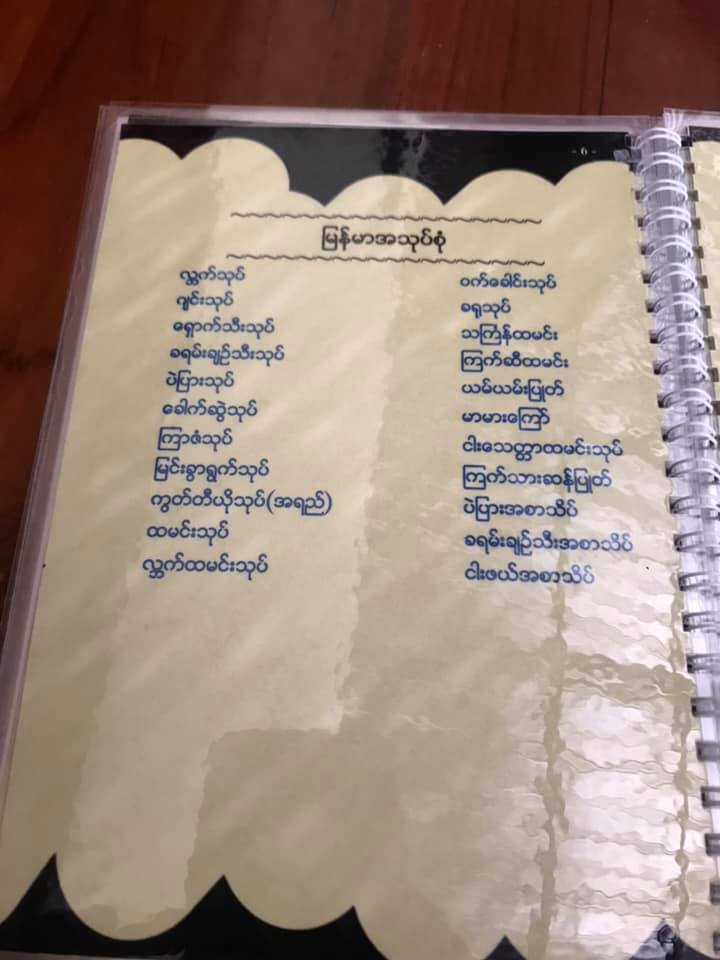 - 6 -
မြန်မာအသုပ်စုံ
လ္ဘက်သုပ်
ဂျင်းသုပ်
ရှောက်သီးသုပ်
ခရမ်းချဉ်သီးသုပ်
ပဲပြားသုပ်
ခေါက်ဆွဲသုပ်
ကြာဇံသုပ်
မြင်းခွာရွက်သုပ်
ကွတ်တီယိုသုပ်(အရည်)
ထမင်းသုပ်
လ္ဘက်ထမင်းသုပ်
ဝက်ခေါင်းသုပ်
ခရုသုပ်
သင်္ကြန်ထမင်း
ကြက်ဆီထမင်း
ယမ်ယမ်းပြုတ်
မာမားကြော်
ငါးသေတ္တာထမင်းသုပ်
ကြက်သားဆန်ပြုတ်
ပဲပြားအစာသိပ်
ခရမ်းချဉ်သီးအစာသိပ်
ငါးဖယ်အစာသိပ်